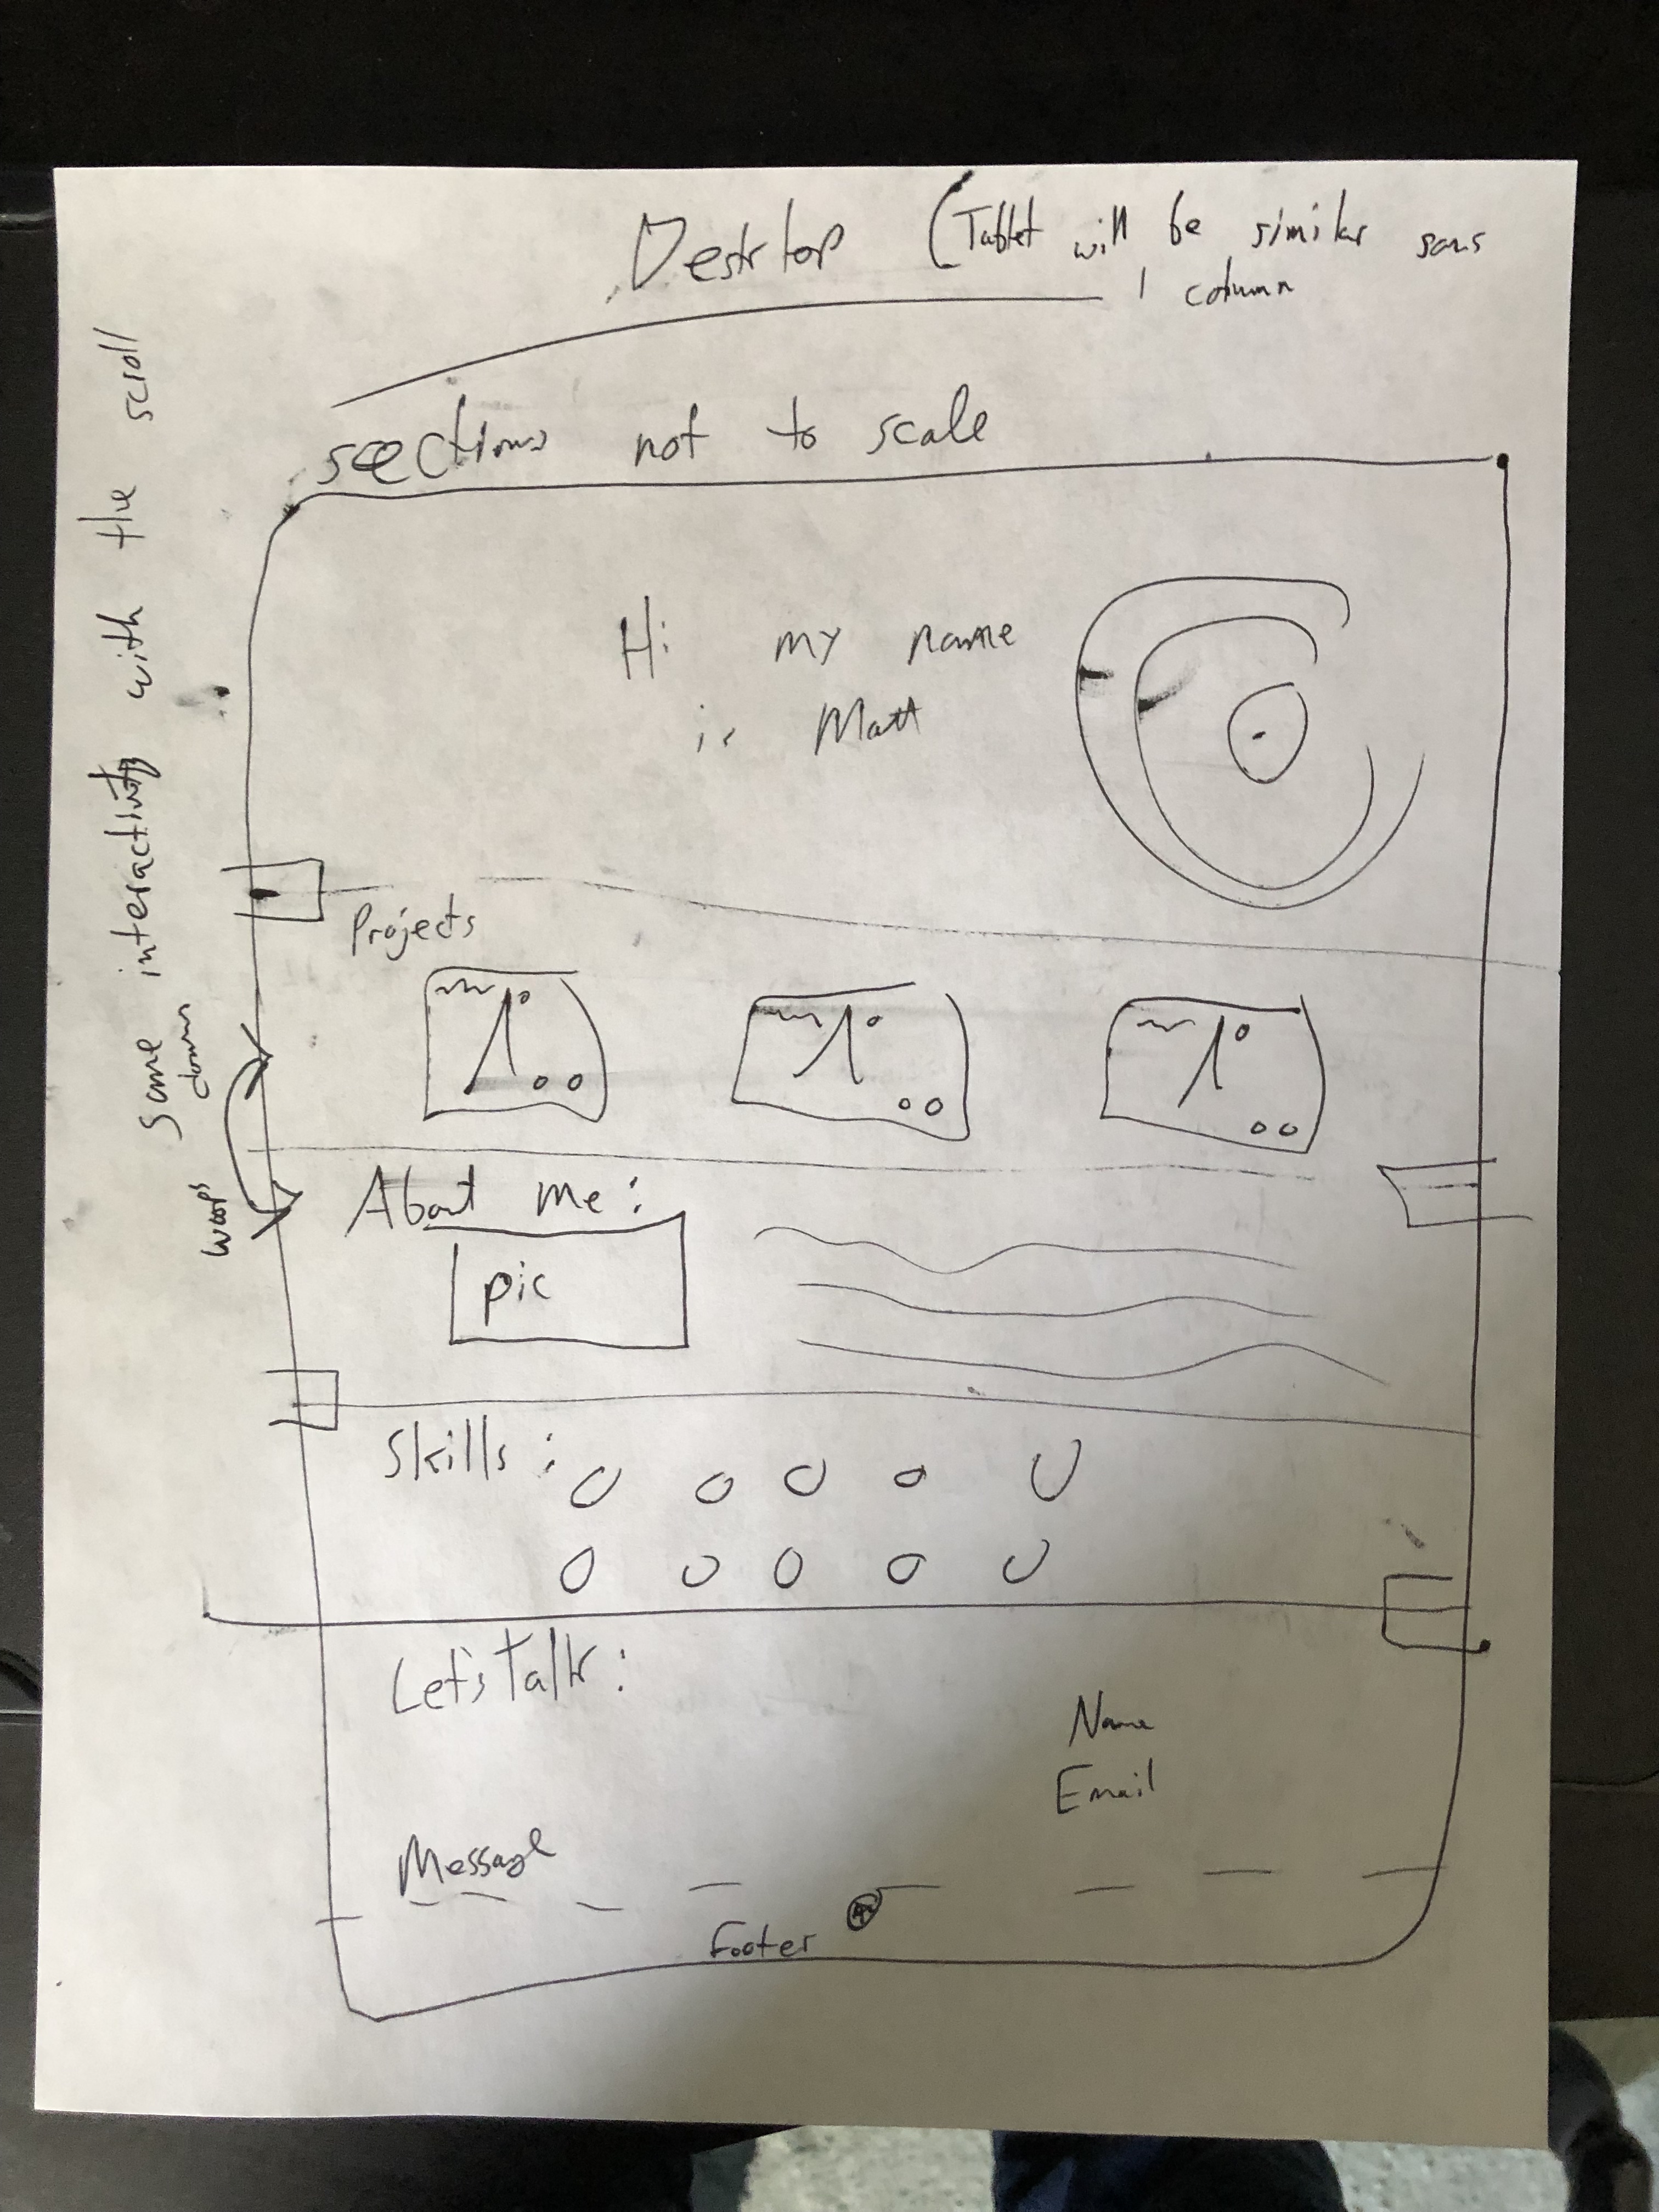 Desktop (Tablet will be similar sans
1 column
sections not to scale
same interactivity with the scroll
down
Hi my name
is Matt
Projects
woops
About me:
pic
Skills:
Let's Talk:
Name
Email
Message
Footer